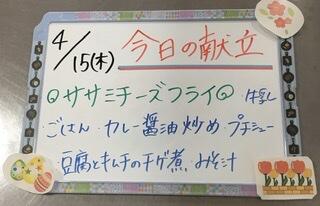 4/15(木) 今日の献立
◎ササミチーズフライ◎ 牛乳
ごはん・カレー醤油炒め・プチシュー
豆腐とキムチのチゲ煮・みそ汁